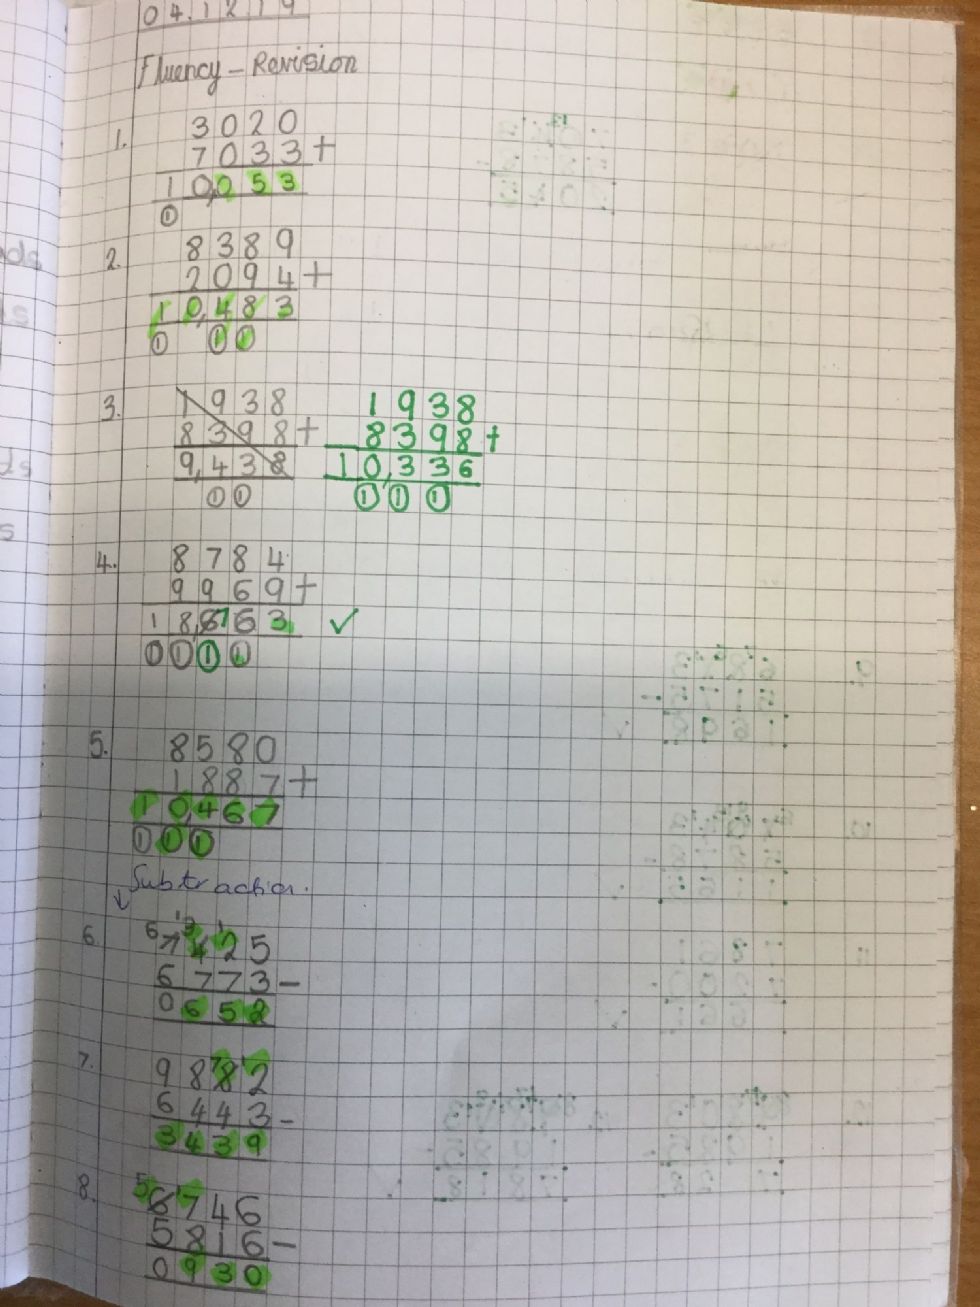 04.12.19
Fluency - Revision
1. 3020
7033+
10,053
1
2. 8389
2094+
10,483
1 1 1
3. 1938 1938
8398+ 8398+
9,438 10,336
1 1 1 1 1
4. 8784
9969+
18,763 ✓
0 1 1 1
5. 8580
1887+
10,467
1 1 1
Subtraction.
↓
6. 7425
6773-
0652
7. 9882
6443-
3439
8. 6746
5816-
0930